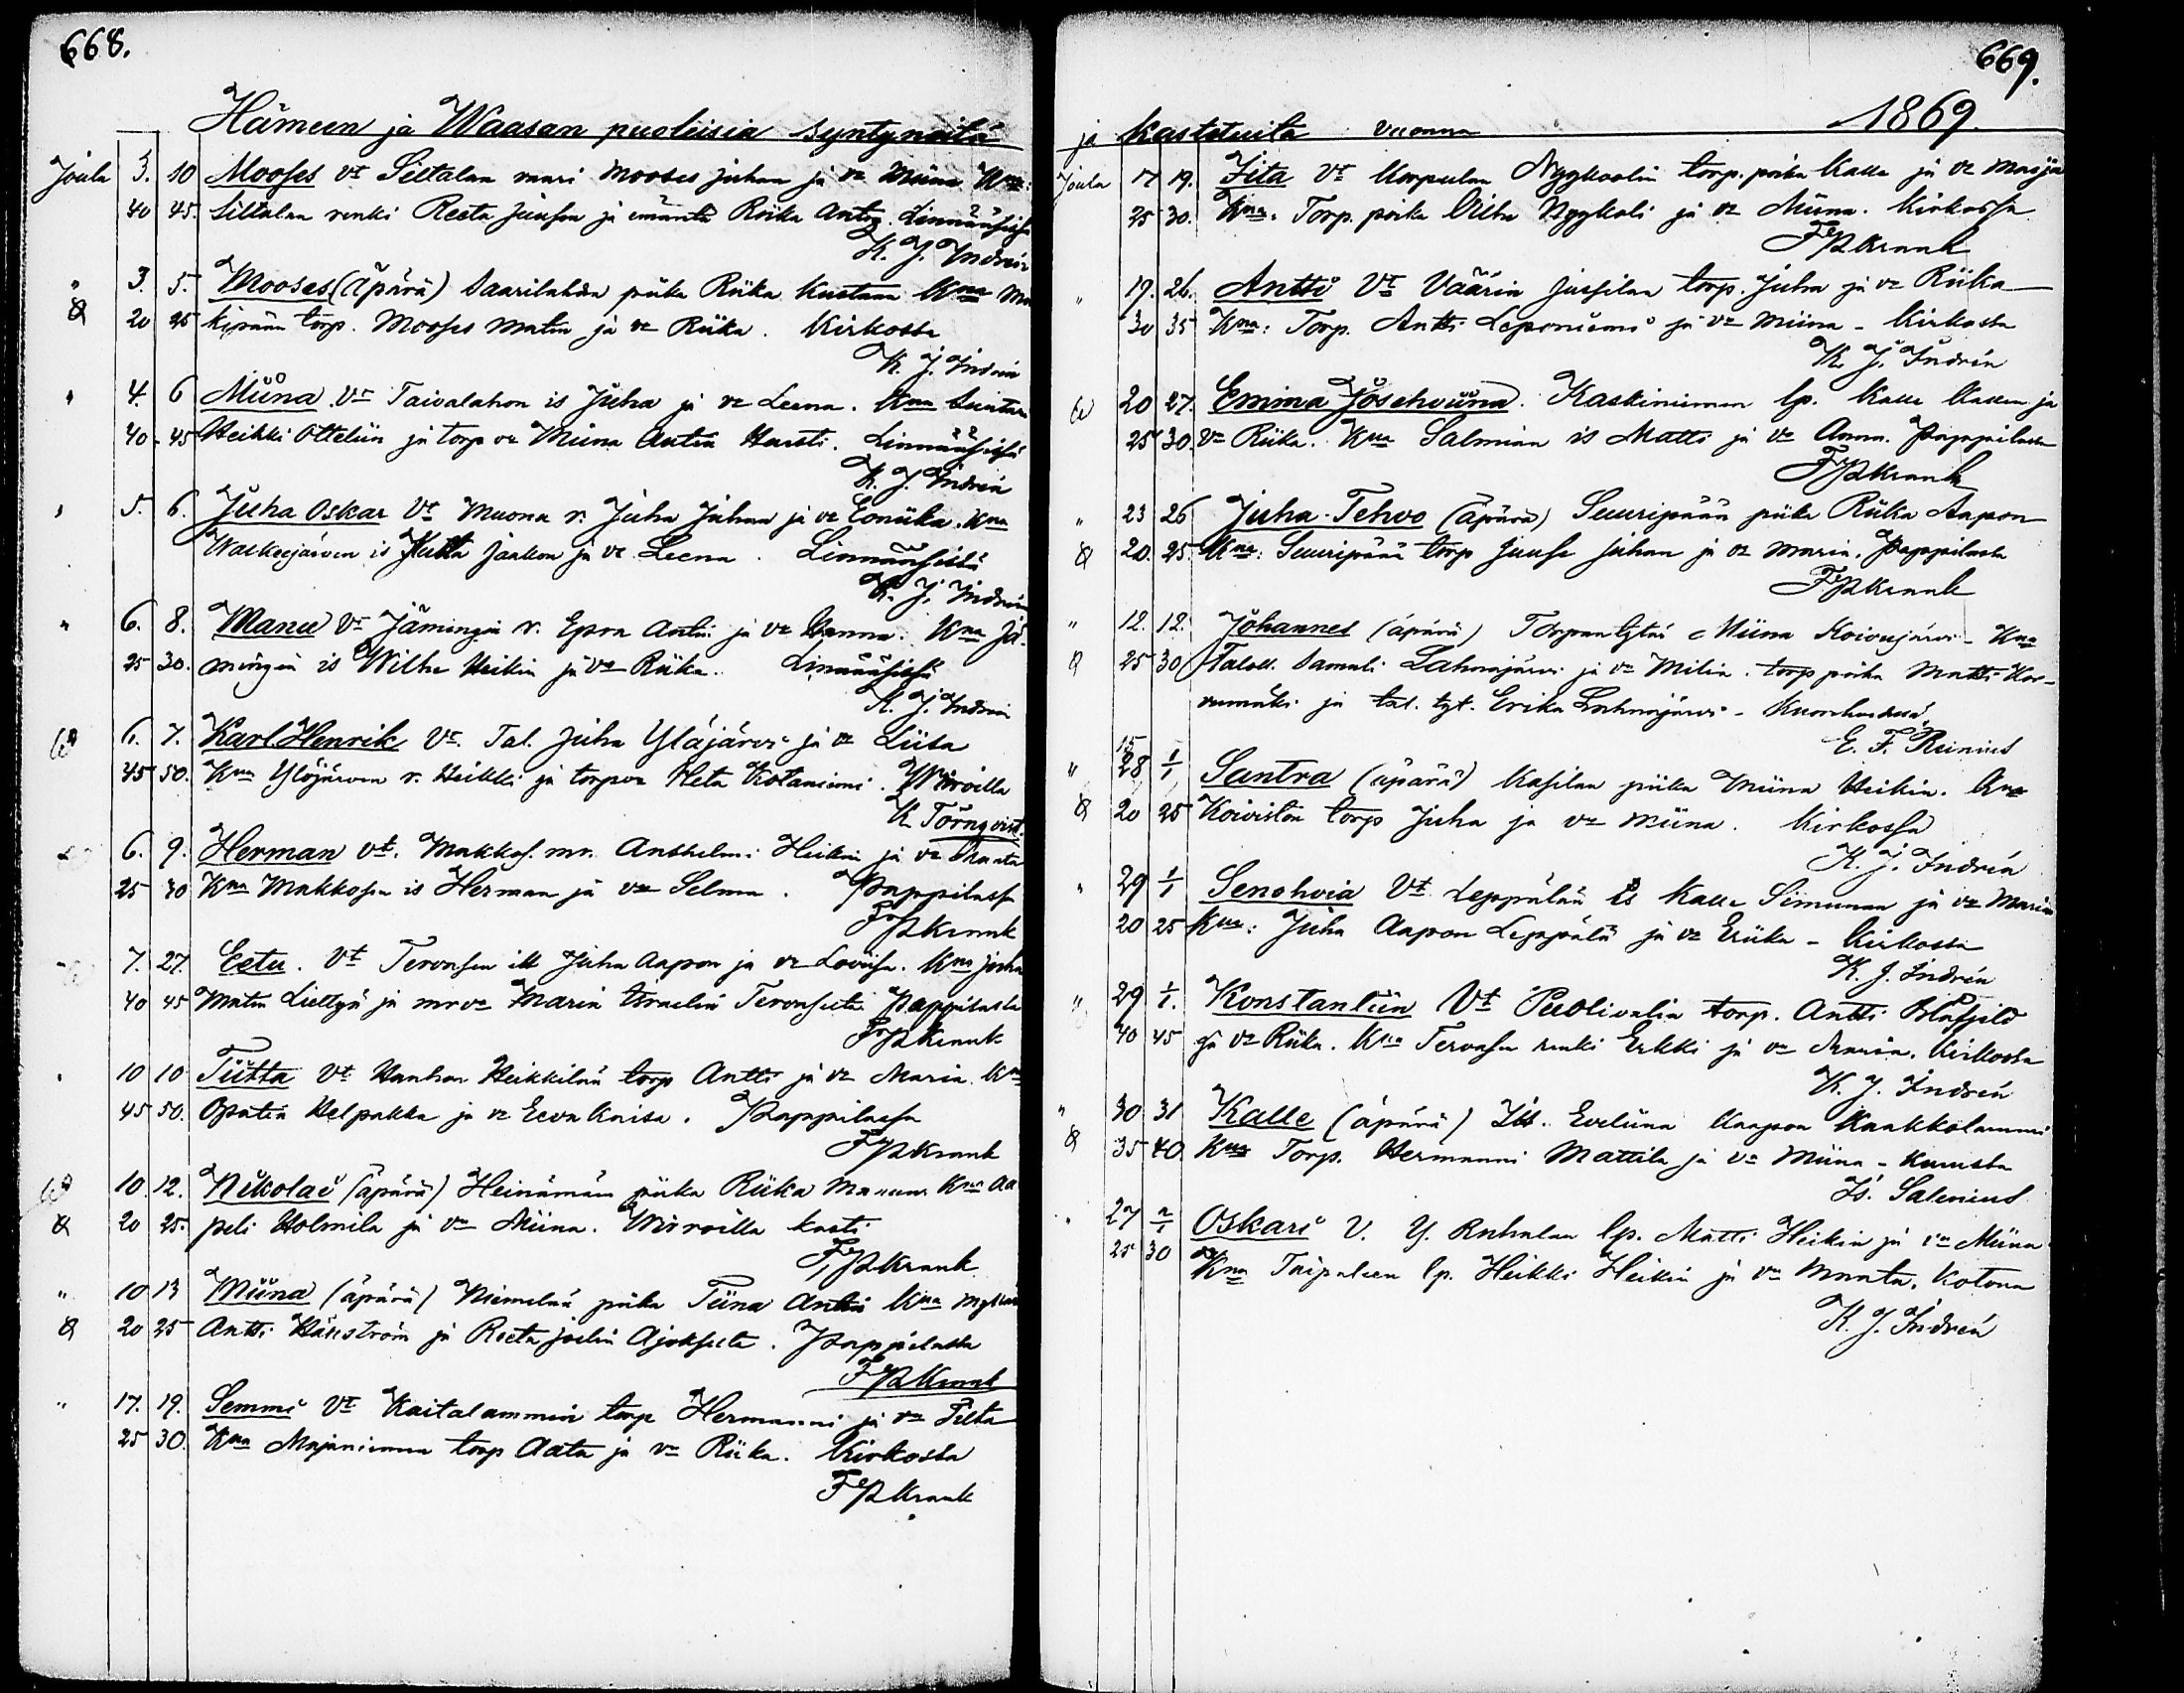 668.
Hämeen ja Waasan puoleisia syntyneitä
Joulu 3. 10 Mooses Vt Siltalan muari Mooses Juhan ja vr Miina Kna:
40 45. Siltalan renki Reeta Juusen ja emäntä Riika Antin. Linnäänsissä
K. J. Indrén
" 3. 5. Mooses (äpärä) Saarilahden piika Riika Kustaan Kna
20 25 kipään torp. Mooses Matin ja vr Riika. Kirkossa
K. J. Indrén
" 4. 6 Miina Vt Taivalahon is Juha ja vr Leena. Kna
40 - 45 Heikki Otteliin ja torp vr Miina Antin Harsti. Linnäänsissä
K. J. Indrén
" 5. 6. Juha Oskar Vt Muona r. Juha Juhan ja vr Eoniika. Kna
Walkeejärven is Jukka Jaakon ja vr Leena. Linnäänsissä
K. J. Indrén
" 6. 8. Manu Vt Jämingin r. Epra Antin ja vr Hanna. Kna Jä-
25 30. mingin is Wilhe Heikin ja vr Riika. Linnäänsissä
K. J. Indrén
6. 7. Karl Henrik Vt. Tal. Juha Yläjärvi ja vr Liisa
45 50. Kna Yläjärven r. Heikki ja torpvr Heta Kotaniemi. Wirroilla
K. Törnqvist.
6. 9. Herman Vt. Makkos. mr. Anshelmi Heikin ja vr Manta
25 30 Kna Makkosen is Herman ja vr Selma. Pappilassa
F P Krank
7. 27. Eetu. Vt Tervasen itl Juha Aapon ja vr Loviisa. Kna Juha
40 45 Matin Liettyä ja mrvr Maria Israelin Tervaseelta. Pappilassa
F P Krank
10 10 Tiitta Vt Hanhon Heikkilän torp Antti ja vr Maria. Kna
45 50. Opatin Helpakka ja vr Eeva Kaisa. Pappilassa
F P Krank
10. 12. Nikolai (äpärä) Heinämäen piika Riika Manun Kna Aa
20 25. peli Holmila ja vr Miina. Wirroilla kasti
F P Krank
" 10 13 Miina (äpärä) Niemelän piika Tiina Antin Kna
20 25 Antti Hällström ja Reeta Joelin Ajokselta. Pappilassa
F P Krank
" 17. 19. Semmi Vt Kaitalammin torp Hermanni ja vr Tilta
25 30. Kna Majaniemen torp Aatu ja vr Riika. Kirkossa
F P Krank
669.
ja kastetuita vuonna 1869.
Joulu 17 19. Iita Vt Korpulan Nyykoolin torp. poika Kalle ja vr Marja
25 30. Kna. Torp. poika Vilhe Nyykoli ja vr Miina. Kirkossa
F P Krank
" 19. 26. Antti Vt Väärin Jussilan torp. Juha ja vr Riika
30 35 Kna: Torp. Antti Leponiemi ja vr Miina - Kirkossa
K. J. Indrén
20 27. Emma Josehviina. Kaskiniemen lp. Kalle Kallen ja
25 30. vr Riika. Kna Salmian is Matti ja vr Anna. Pappilassa
F P Krank
" 23 26 Juha Tehvo (äpärä) Suuripään piika Riika Aapon
20. 25. Kna: Suuripään torp Juuse Juhan ja vr Maria. Pappilassa
F P Krank
" 12. 12. Johannes (äpärä) Torpantytär Miina Koivujärvi - Kna
25 30 Taloll. Samuli Lahnajärvi ja vr Milia. torp poika Matti Kor-
vumäki ja tal. tyt. Erika Lahnajärvi -
E. F. Reinius
15
" 28 1/1 Santra (äpärä) Kasilan piika Miina Heikin. Kna
20 25 Koiviston torp Juha ja vr Miina. Kirkossa
K. J. Indrén
" 29 1/1 Senohvia Vt Leppälän is Kalle Simunan ja vr Maria
20 25 Kna: Juha Aapon Leppälä ja vr Eriika - Kirkossa
K. J. Indrén
" 29 1/1. Konstantiin Vt Puolivalin torp. Antti Blåfjeld
40 45 ja vr Riika. Kna Tervasen renki Erkki ja vr Maria. Kirkossa
K. J. Indrén
" 30 31 Kalle (äpärä) Its. Eveliina Kaapon Kaakkolammi
35 40. Kna Torp. Hermanni Mattila ja vr Miina -
Is. Salenius
" 27 2/1 Oskari V. Y. Ruhalan lp. Matti Heikin ja vr Miina
25 30 Kna Taipaleen lp. Heikki Heikin ja vr Manta. Kotona
K. J. Indrén